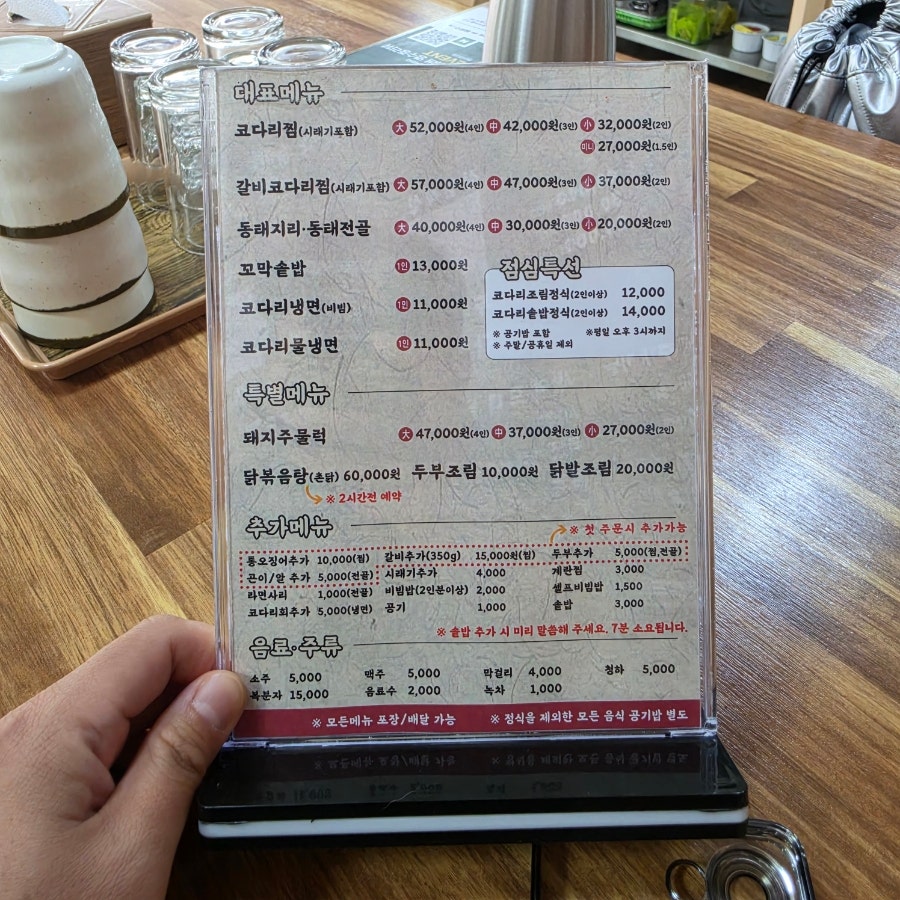 대표메뉴
코다리찜(시래기포함) 大 52,000원(4인) 中 42,000원(3인) 小 32,000원(2인)
미니 27,000원(1.5인)
갈비코다리찜(시래기포함) 大 57,000원(4인) 中 47,000원(3인) 小 37,000원(2인)
동태지리·동태전골 大 40,000원(4인) 中 30,000원(3인) 小 20,000원(2인)
꼬막솥밥 1인 13,000원
코다리냉면(비빔) 1인 11,000원
코다리물냉면 1인 11,000원
점심특선
코다리조림정식(2인이상) 12,000
코다리솥밥정식(2인이상) 14,000
※ 공기밥 포함 ※평일 오후 3시까지
※ 주말/공휴일 제외
특별메뉴
돼지주물럭 大 47,000원(4인) 中 37,000원(3인) 小 27,000원(2인)
닭볶음탕(촌닭) 60,000원 두부조림 10,000원 닭발조림 20,000원
※ 2시간전 예약
추가메뉴
※ 첫 주문시 추가가능
통오징어추가 10,000(찜) 갈비추가(350g) 15,000원(찜) 두부추가 5,000(찜,전골)
곤이/알 추가 5,000(전골) 시래기추가 4,000 계란찜 3,000
라면사리 1,000(전골) 비빔밥(2인분이상) 2,000 셀프비빔밥 1,500
코다리회추가 5,000(냉면) 공기 1,000 솥밥 3,000
※ 솥밥 추가 시 미리 말씀해 주세요. 7분 소요됩니다.
음료·주류
소주 5,000 맥주 5,000 막걸리 4,000 청하 5,000
복분자 15,000 음료수 2,000 녹차 1,000
※ 모든메뉴 포장/배달 가능 ※ 정식을 제외한 모든 음식 공기밥 별도